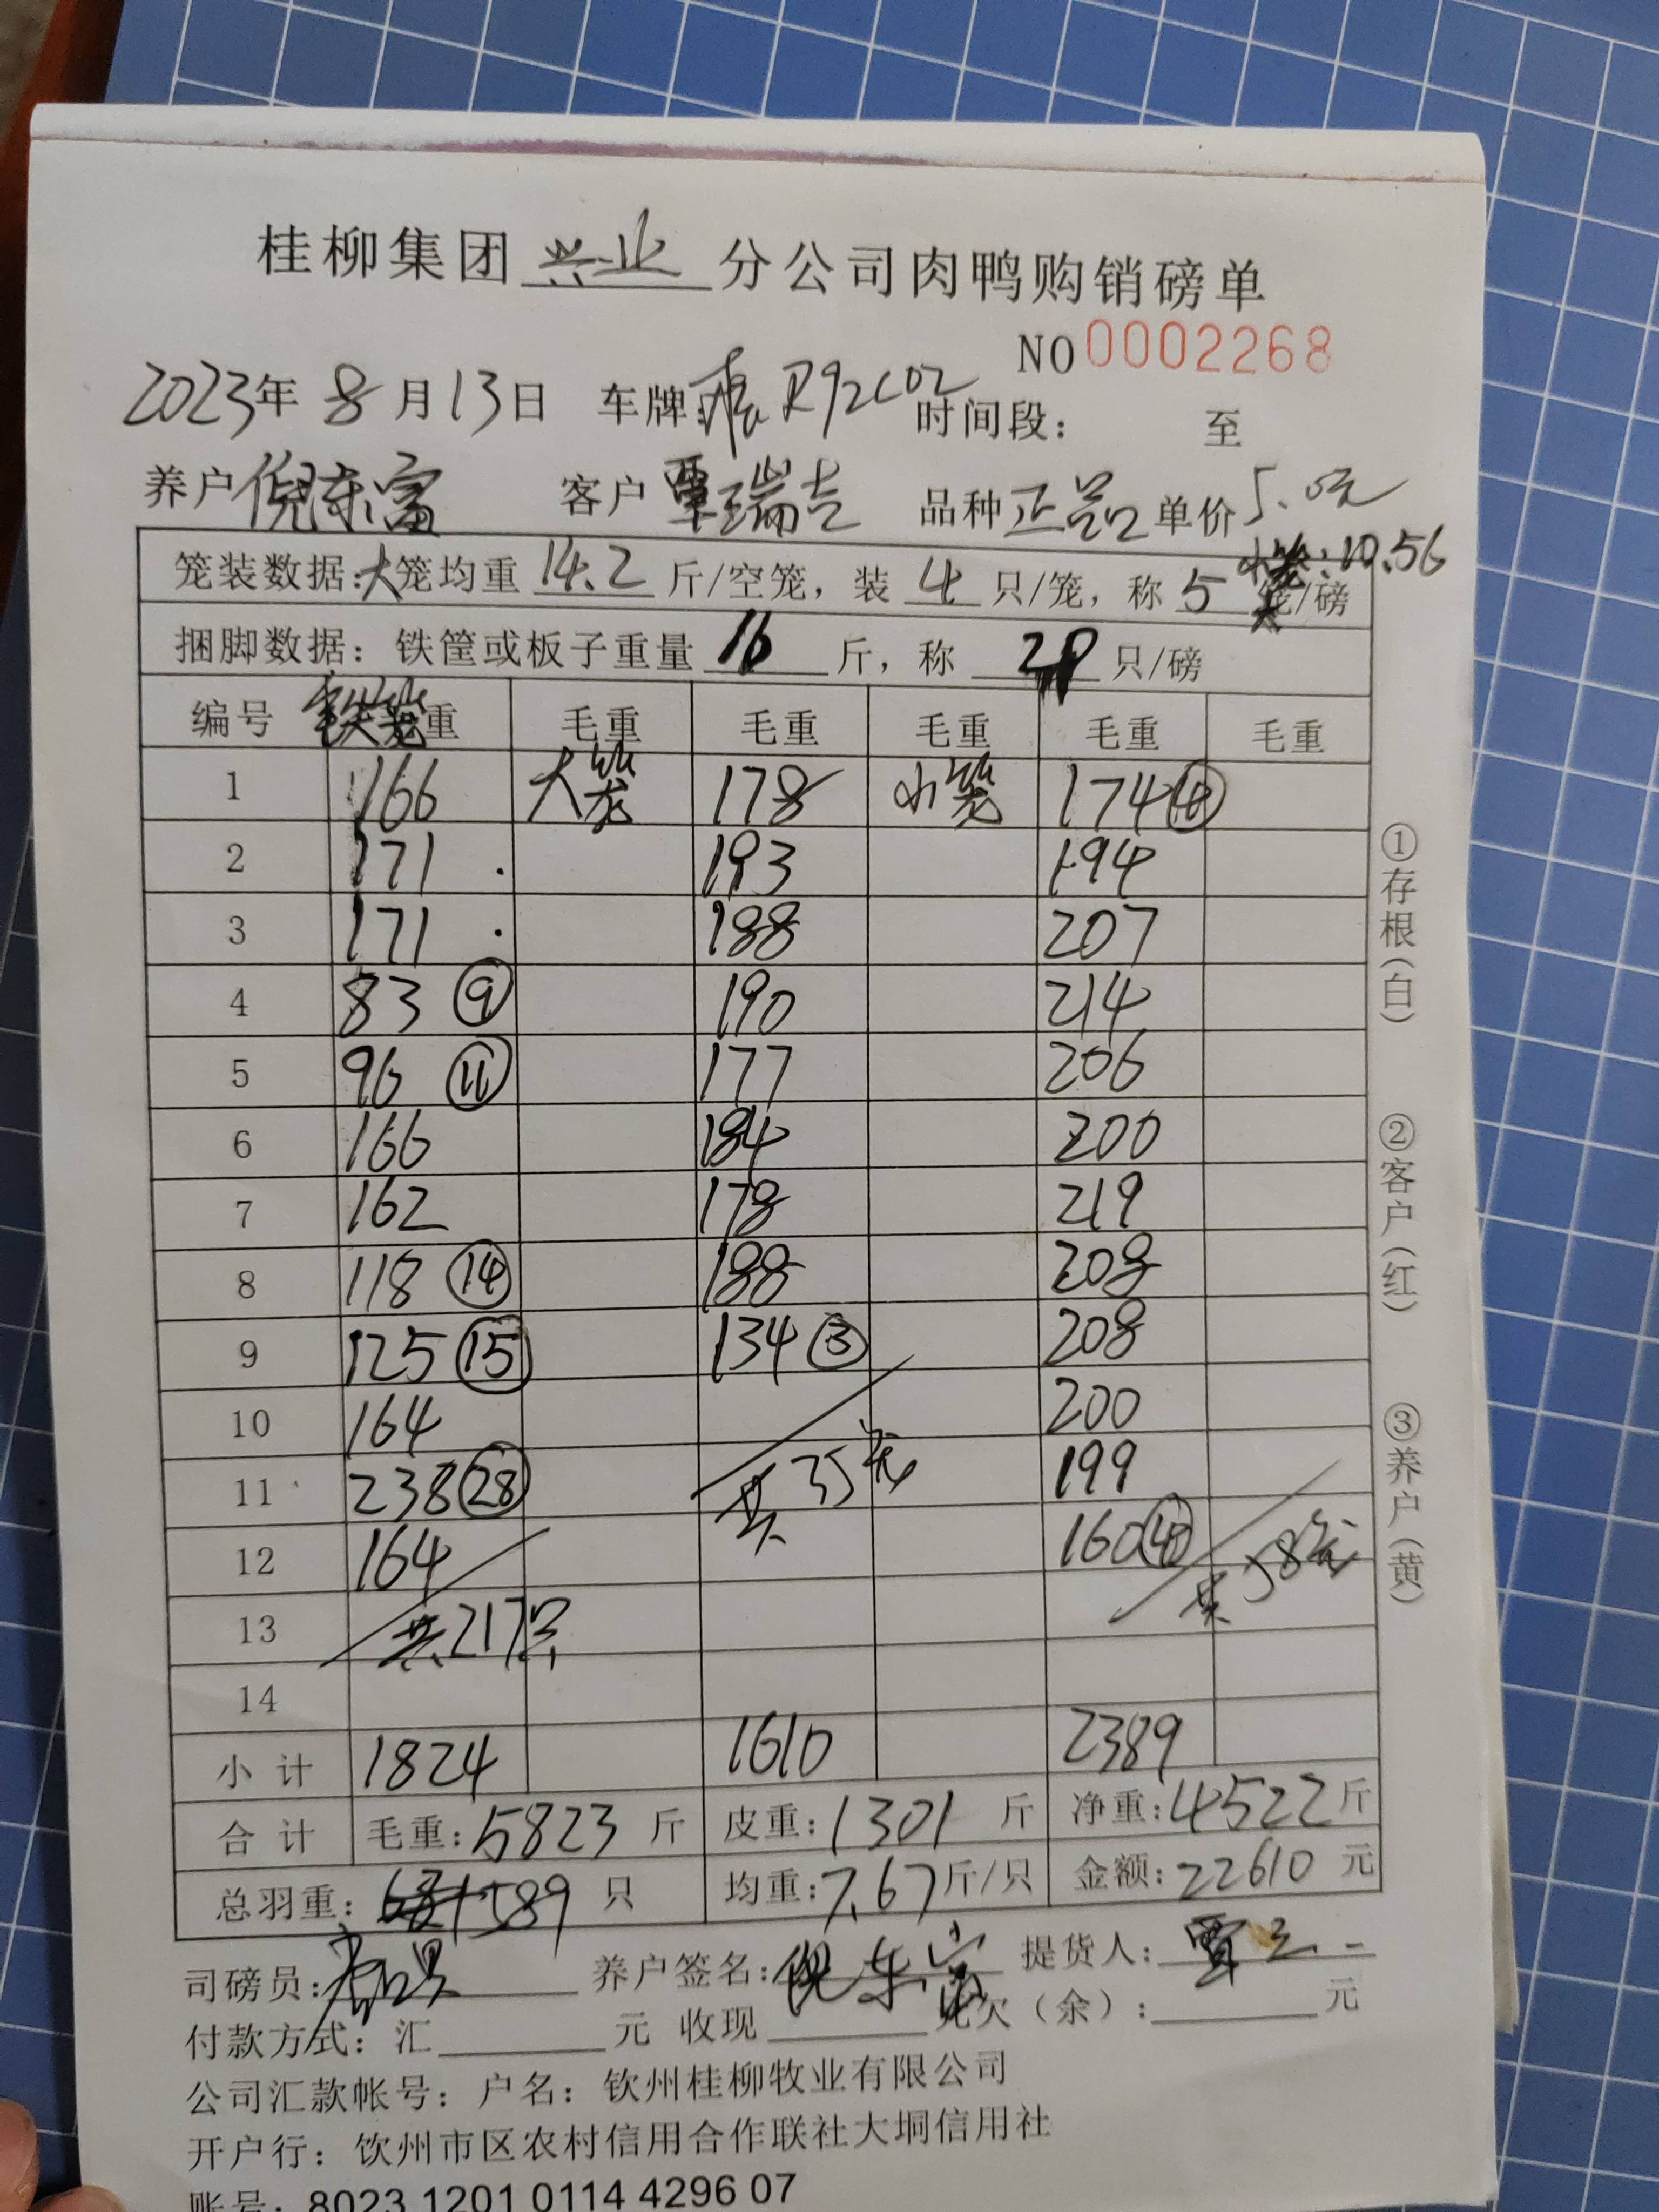 桂柳集团 兴业 分公司肉鸭购销磅单
NO 0002268
2023年 8月13日 车牌 R92C02 时间段: 至
养户 倪东富 客户 覃瑞吉 品种 正品 单价 5.0元
小笼:10.56
笼装数据:大笼均重 14.2 斤/空笼，装 4 只/笼，称 5 笼/磅
捆脚数据: 铁筐或板子重量 16 斤，称 20 只/磅
编号 铁笼重 毛重 毛重 毛重 毛重 毛重
1 166 大笼 178 小笼 174
2 171 193 194
3 171 188 207
4 83 ⑨ 190 214
5 96 ⑪ 177 206
6 166 184 200
7 162 178 219
8 118 ⑭ 188 208
9 125 ⑮ 134 ③ 208
10 164 200
11 238 ㉘ 共35笼 199
12 164 160 ④ 共58笼
13 共217只
14
小计 1824 1610 2389
合计 毛重: 5823 斤 皮重: 1301 斤 净重: 4522 斤
总羽重: 589 只 均重: 7.67 斤/只 金额: 22610 元
司磅员: 养户签名: 倪东富 提货人:
付款方式: 汇 元 收现 元欠（余）: 元
公司汇款帐号: 户名: 钦州桂柳牧业有限公司
开户行: 钦州市区农村信用合作联社大垌信用社
账号: 8023 1201 0114 4296 07
①存根(白)
②客户(红)
③养户(黄)